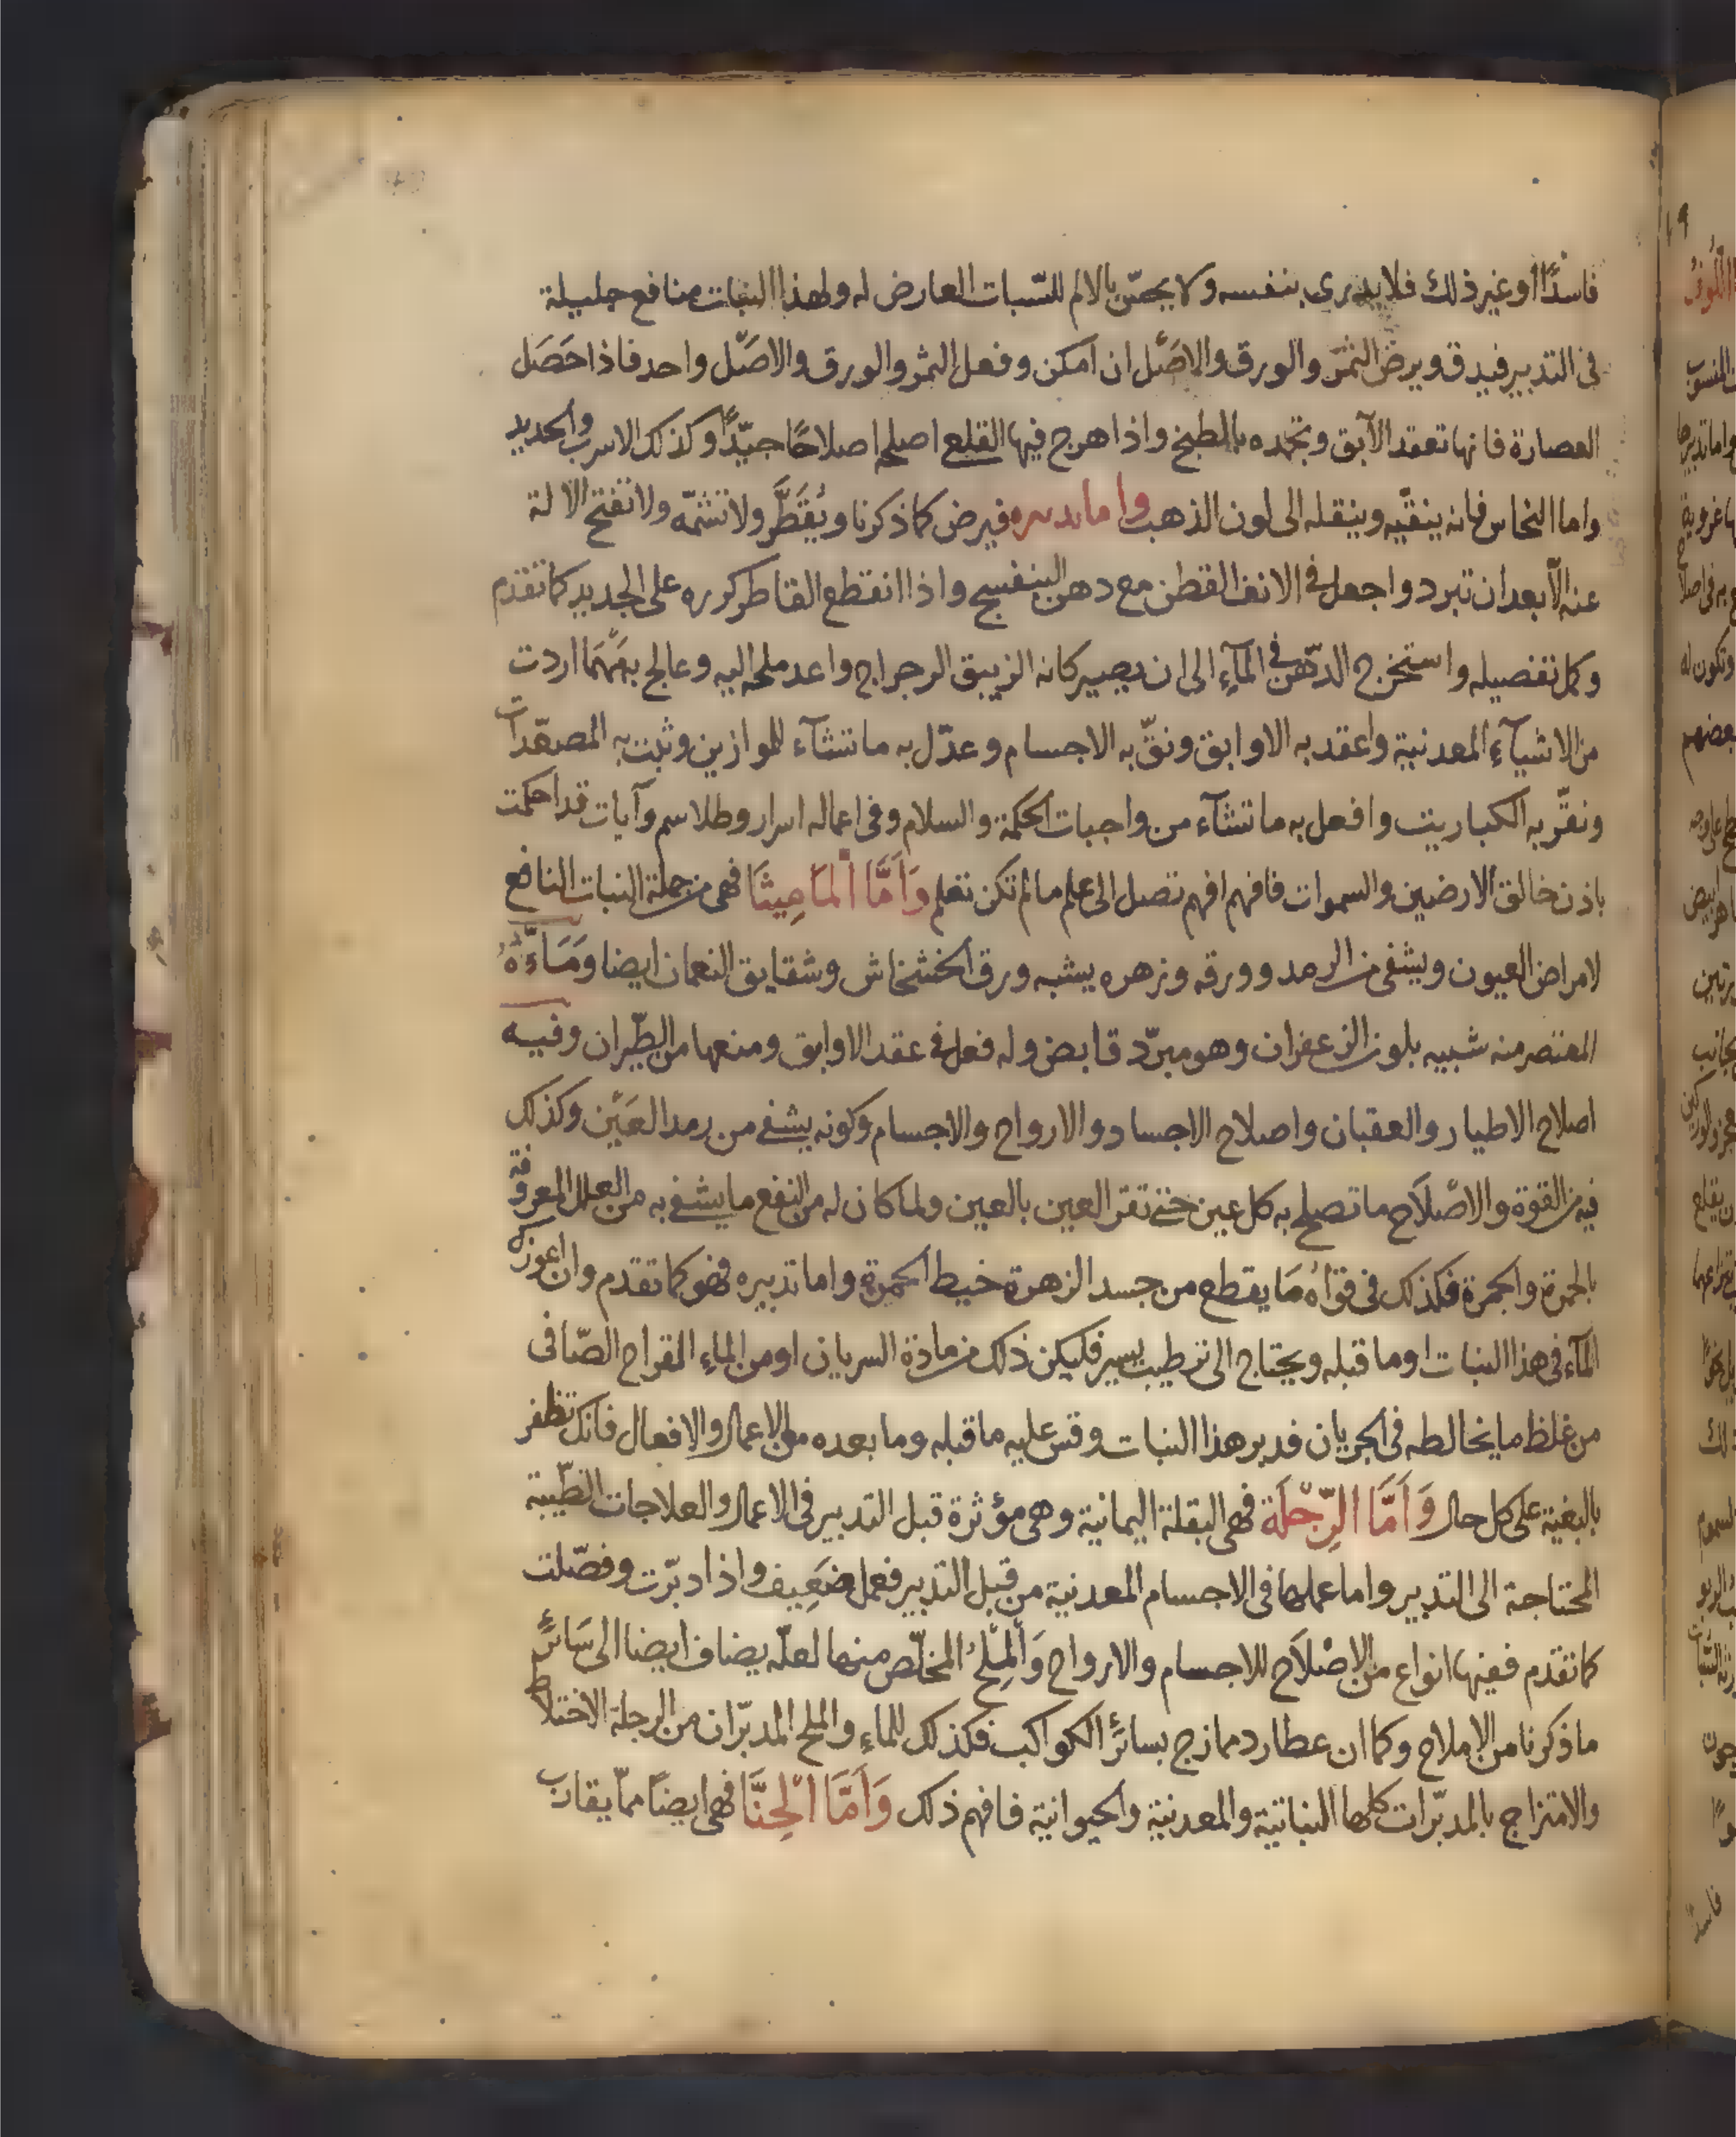 فاسدًا او غير ذلك فلا يدرى بنفسه ولا يحسّ بالالم للسّبات العارض له ولهذا النبات منافع جليلة
فى التدبير فيدق ويرض الثمر والورق والاصَل ان امكن وفعل الثمر والورق والاصَل واحد فاذا حَصَل
العصارة فانها تعقد الآبق وتجمده بالطبخ واذا هرج فيها القلع اصلح اصلاحًا جيّدًا وكذلك الاسرب والحديد
واما النحاس فانه ينقّيه وينقله الى لون الذهب واما تدبيره فيرض كما ذكرنا ويُقَطَّر ولا تشمّه ولا تفتح الالة
عنه الّا بعد ان تبرد واجعل فى الانف القطن مع دهن البنفسج واذا انقطع القاطر كرره على الجديد كما تقدم
وكل تفصيله واستخرج الدّهن فى المآءِ الى ان يصير كانه الزيبق الرجراج واعد ملحه اليه وعالج به مَهْمَا اردت
من الاشيآءِ المعدنية واعقد به الاوابق ونقّ به الاجسام وعدّل به ما تشآء للموازين وثبت به المصعّدات
ونقّ به الكباريت وافعل به ما تشآء من واجبات الحكمة والسلام وفى اعماله اسرار وطلاسم وآيات قد احكمت
باذن خالق الارضين والسموات فافهم افهم تصل الى علم ما لم تكن تعلم وَاَمَّا اْلمَاهِيثَا فهى من جملة النبات النافع
لامراض العيون ويشفى من الرمد وورقه وزهره يشبه ورق الخشخاش وشقايق النعمان ايضا وَمَاؤُهُ
المعتصر منه شبيه بلون الزعفران وهو مبرّد قابض وله فعل فى عقد الاوابق ومنعها من الطّيران وفيه
اصلاح الاطيار والعقبان واصلاح الاجساد والارواح والاجسام وكونه يشفى من رمد العَيْن وكذلك
فيه من القوة والاصْلَاح ما تصلح به كل عين حتى تقر العين بالعين ولما كان له من النفع ما يشفى به من العلل المعروفة
بالحمرة والجمرة فكذلك فى قوَاهُ مَا يقطع من جسد الزهرة خيط الحمرة واما تدبيره فهو كما تقدم وان اعوزك
المآء فى هذا النبات او ما قبله ويحتاج الى ترطيب يسير فليكن ذلك من مادة السريان او من الماءِ القراح الصّافى
من غلظ ما يخالطه فى الجريان فدبر هذا النبات وقس عليه ما قبله وما بعده من الاعمال والافعال فانك تظفر
بالبغية على كل حال وَاَمَّا الرِّجْلَة فهى البقلة اليمانية وهى مؤثرة قبل التدبير فى الاعمال والعلاجات الطّبيّة
المحتاجة الى التدبير واما عملها فى الاجسام المعدنية من قبل التدبير فعمل ضَعِيف واذا دبّرت وفصّلت
كما تقدم ففيها انواع من الاصْلَاح للاجسام والارواح وَاْلمِلْحُ المخلّص منها لعلّه يضاف ايضا الى سَائرِ
ما ذكرنا من الاملاح وكما ان عطارد ممازج بسائر الكواكب فكذلك للماءِ والملح المدبّران من الرجلة الاختلاط
والامتزاج بالمدبّرات كلها النباتية والمعدنية والحيوانية فافهم ذلك وَاَمَّا اْلحِنَّا فهى ايضًا ممّا يقارب